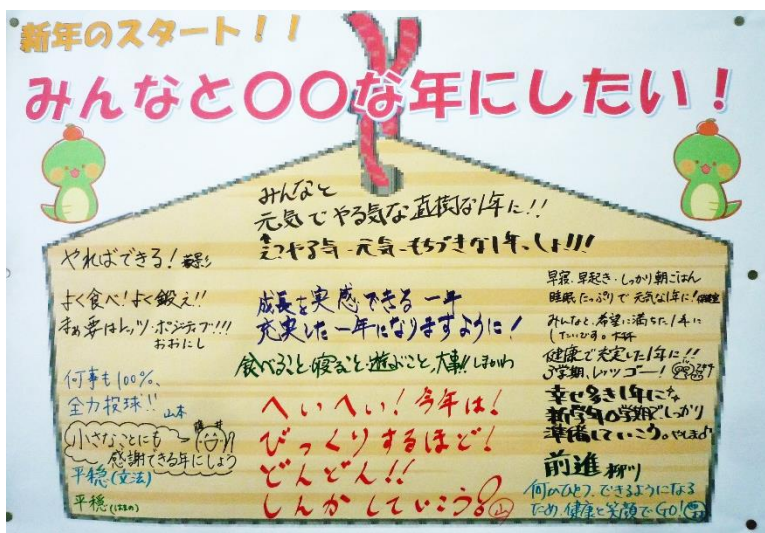 新年のスタート！！
みんなと〇〇な年にしたい！
みんなと
元気でやる気な直樹な1年に!!
やる気 元気 もちづきな1年、しょ!!!
やればできる！
よく食べ！よく鍛え!!
まぁ要はレッツ・ポジティブ!!!
おおにし
何事も100%、
全力投球!! 山本
小さなことにも
感謝できる年にしよう
平穏(文法)
平穏(はまの)
成長を実感できる一年
充実した一年になりますように！
食べること・寝ること・遊ぶこと、大事!! しまかわ
へいへい！今年は！
びっくりするほど！
どんどん!!
しんかしていこう！ 山
早寝・早起き・しっかり朝ごはん
睡眠たっぷりで元気な1年に!
みんなと、希望に満ちた1年に
したいです。
健康で充実した1年に!!
3学期、レッツゴー！
幸せ多き1年にな
新学年0学期でしっかり
準備していこう。やしま
前進 柳川
何かひとつ、できるようになる
ため、健康と笑顔でGO!